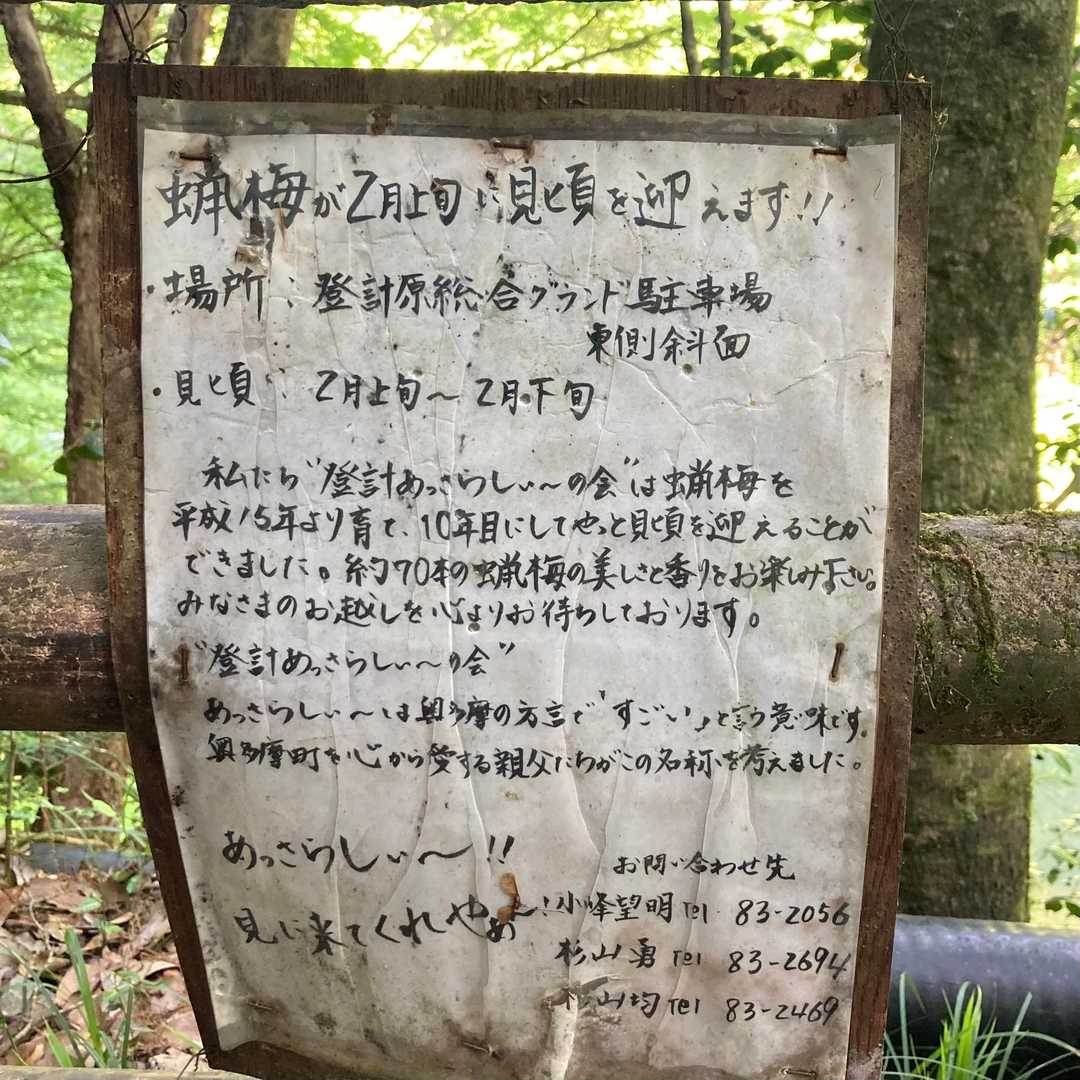 蝋梅が2月上旬に見頃を迎えます!!
・場所:登計原総合グランド駐車場
東側斜面
・見頃:2月上旬〜2月下旬
私たち"登計あっさらしぃ〜の会"は蝋梅を
平成15年より育て、10年目にしてやっと見頃を迎えることが
できました。約70本の蝋梅の美しさと香りをお楽しみ下さい。
みなさまのお越しを心よりお待ちしております。
"登計あっさらしぃ〜の会"
あっさらしぃ〜は奥多摩の方言で「すごい」と言う意味です。
奥多摩町を心から愛する親父たちがこの名称を考えました。
あっさらしぃ〜!!
見に来てくれやぁ〜!
お問い合わせ先
小峰望明 Tel 83-2056
杉山勇 Tel 83-2694
杉山均 Tel 83-2469